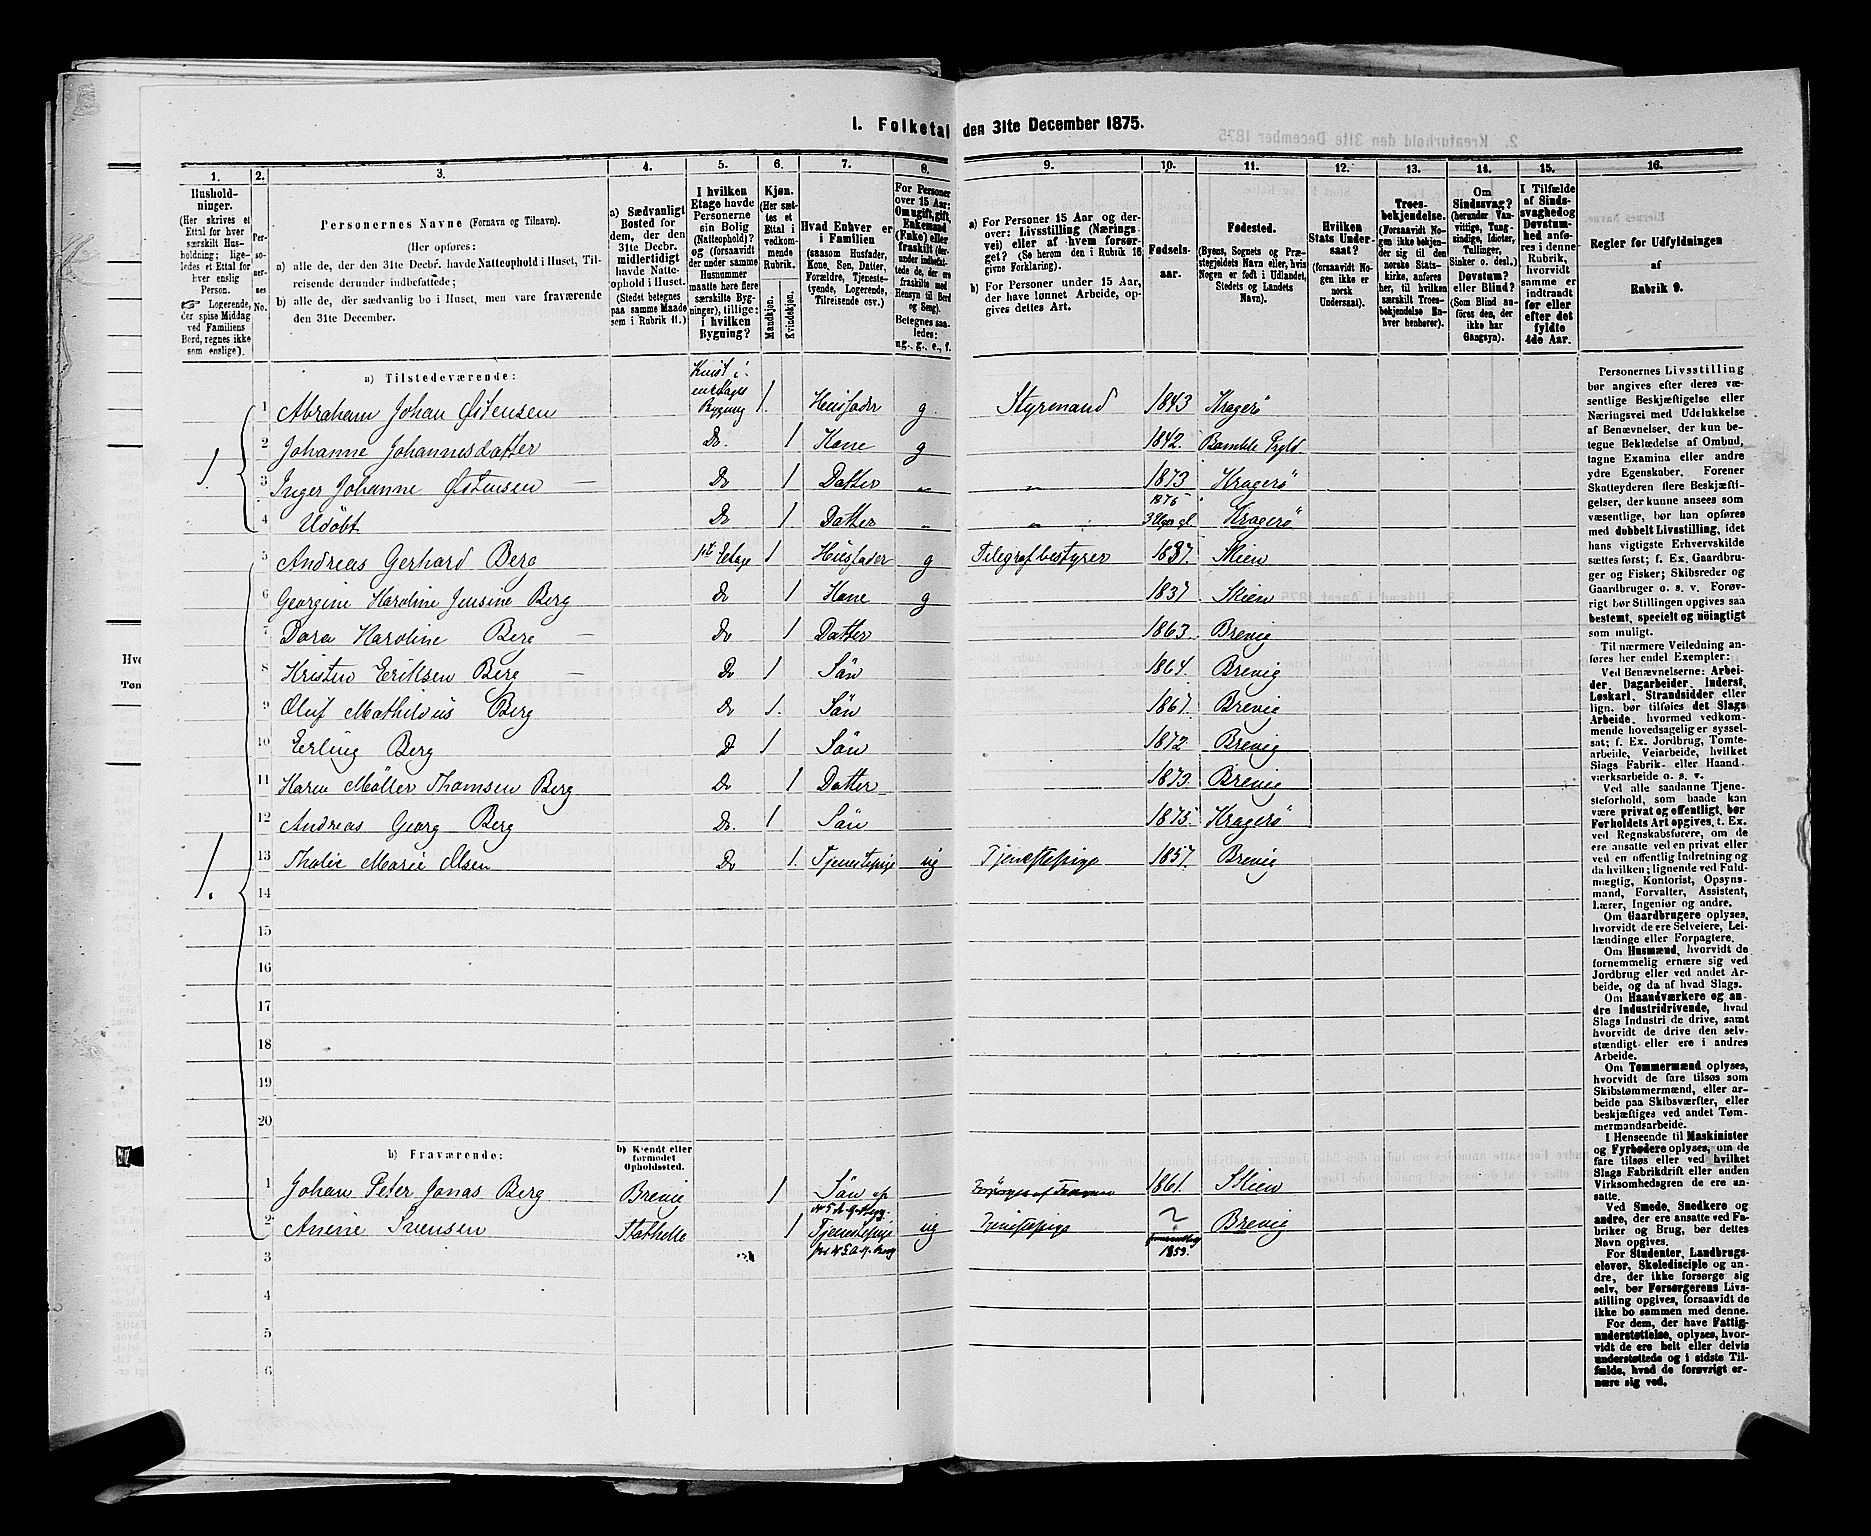 1. Folketal den 31te December 1875.
1. 2. 3. 4. 5. 6. 7. 8. 9. 10. 11. 12. 13. 14. 15. 16.
Husholdninger.
(Her skrives et
Ettal for hver
særskilt Husholdning; ligeledes
et Ettal for
hver enslig
Person.
☞ Logerende,
der spise Middag
ved Familiens
Bord, regnes ikke
som enslige).
Personernes No.
Personernes Navne (Fornavn og Tilnavn).
(Her opføres:
a) alle de, der den 31te Decbr. havde Natteophold i Huset, Tilreisende derunder indbefattede;
b) alle de, der sædvanlig bo i Huset, men vare fraværende
den 31te December.
a) Sædvanligt
Bosted for
dem, der den
31te Decbr.
midlertidigt
havde Natteophold i Huset.
(Stedet betegnes
paa samme Maade
som i Rubrik 11.)
I hvilken
Etage havde
Personerne
sin Bolig
(Natteophold)?
og (forsaavidt
der under samme
Husnummer
maatte høre flere
særskilte Bygninger), tillige:
i hvilken
Bygning?
Kjøn.
(Her sættes et
Ettal i
vedkommende
Rubrik.
Mandkjøn.
Kvindekjøn.
Hvad Enhver er
i Familien
(saasom Husfader,
Kone, Søn, Datter,
Forældre, Tjenestetyende, Logerende,
Tilreisende osv.)
For Personer
over 15 Aar:
Om ugift, gift,
Enkemand
(Enke) eller
fraskilt
Betegnes saaledes:
ug., g., e., f.
a) For Personer 15 Aar og derover: Livsstilling (Næringsvei) eller af hvem forsørget? (Se herom den i Rubrik 16
givne Forklaring).
b) For Personer under 15 Aar,
der have lønnet Arbeide, opgives dettes Art.
Fødselsaar.
Fødested.
(Byens, Sognets og Præstegjeldets Navn eller, hvis
Nogen er født i Udlandet,
Stedets og Landets
Navn).
Hvilken
Stats Undersaat?
(forsaavidt Nogen ikke er
norsk
Undersaat).
Troesbekjendelse.
(Forsaavidt Nogen ikke bekjender sig til den
norske Statskirke, anføres
her, til hvilken
særskilt Troesbekjendelse Enhver henhører).
Om
Sindssvag?
(herunder Vanvittige, Tungsindige, Idioter,
Tullinger,
Sinker o. desl.)
Døvstum?
eller Blind?
(Som Blind anføres den, der
ikke har
Gangsyn).
I Tilfælde
af Sindssvaghed og
Døvstumhed anføres i denne
Rubrik,
hvorvidt
samme er
indtraadt
før eller
efter det
fyldte
4de Aar.
Regler for Udfyldningen
af
Rubrik 9.
a) Tilstedeværende:
1 Abraham Johan Østensen Bygning 1 Husfader g Styrmand 1843 Kragerö
2 Johanne Johannesdatter Do. 1 Kone g 1842. Bamble
3 Inger Johanne Østensen Do 1 Datter „ „ 1873 Kragerö
4 Udöbt Do 1 Datter „ „ 1875 Kragerö
5 Andreas Gerhard Berg 1st Etage 1 Husfader g Telegrafbestyrer 1837. Skien
6 Georgine Karoline Jensine Berg Do 1 Kone g 1837 Skien
7 Dora Karoline Berg Do 1 Datter 1863. Brevig
8 Kristen Eriksen Berg Do 1 Sön 1864. Brevig
9 Oluf Mathilius Berg Do 1. Sön 1867. Brevig
10 Erling Berg D 1 Sön 1872 Brevig
11 Karen Möller Thomsen Berg Do 1 Datter 1873. Brevig
12 Andreas Georg Berg Do. 1 Sön 1875. Kragerö
13 Thalie Marie Olsen Do 1. Tjenestepige ug Tjenestepige 1857. Brevig
1.
1.
14
15
16
17
18
19
20
b) Fraværende:
b) Kjendt eller
formodet
Opholdssted.
1 Johan Peter Jonas Berg Brevig 1 Sön af 1861. Skien
2 Anine Svensen Stathelle 1 Tjenestepige ug Tjenestepige 1853. Brevig
3
4
5
6
Personernes Livsstilling
bør angives efter deres væsentlige Beskjæftigelse eller
Næringsvei med Udelukkelse
af Benævnelser, der kun betegne Beklædelse af Ombud,
tagne Examina eller andre
ydre Egenskaber. Forener
Skatteyderen flere Beskjæftigelser, der kunne ansees som
væsentlige, bør han opføres
med dobbelt Livsstilling, idet
hans vigtigste Erhvervskilde
sættes først; f. Ex. Gaardbruger og Fisker; Skibsreder og
Gaardbruger o. s. v. Forøvrigt bør Stillingen opgives saa
bestemt, specielt og nøiagtigt
som muligt.
Til nærmere Veiledning anføres her endel Exempler:
Ved Benævnelserne: Arbeider, Dagarbeider, Inderst,
Løskarl, Strandsidder eller
lign. bør tilføies det Slags
Arbeide, hvormed vedkommende hovedsagelig er sysselsat; f. Ex. Jordbrug, Tomtearbeide, Veiarbeide, hvilket
Slags Fabrik- eller Haandværksarbeide o. s. v.
Ved alle saadanne Tjenesteforhold, som baade kan
være privat og offentligt, bør
Forholdets Art opgives, t. Ex.
ved Regnskabsførere, om de
ere ansatte ved en privat eller
ved en offentlig Indretning og
da hvilken; lignende ved Fuldmægtig, Kontorist, Opsynsmand, Forvalter, Assistent,
Lærer, Ingeniør og andre.
Om Gaardbrugere oplyses,
hvorvidt de ere Selveiere, Leilændinge eller Forpagtere.
Om Husmænd, hvorvidt de
fornemmelig ernære sig ved
Jordbrug eller ved andet Arbeide, og da af hvad Slags.
Om Haandværkere og andre Industridrivende, hvad
Slags Industri de drive, samt
hvorvidt de drive den selvstændigt eller ere i andres
Arbeide.
Om Tømmermænd oplyses,
hvorvidt de fare tilsøs som
Skibstømmermænd, eller arbeide paa Skibsværfter, eller
beskjæftiges ved andet Tømmermandsarbeide.
I Henseende til Maskinister
og Fyrbødere oplyses, om de
fare tilsøs eller ved hvilket
Slags Fabrikdrift eller anden
Virksomhedsgren de ere ansatte.
Ved Smede, Snedkere og
andre, der ere ansatte ved Fabriker og Brug, bør dettes
Navn opgives.
For Studenter, Landbrugselever, Skoledisciple og andre, der ikke forsørge sig
selv, bør Forsørgerens Livsstilling opgives, forsaavidt de
ikke bo sammen med denne.
For dem, der have Fattigunderstøttelse, oplyses, hvorvidt de ere helt eller delvis
understøttede og i sidste Tilfælde, hvad de forøvrigt ernære sig ved.